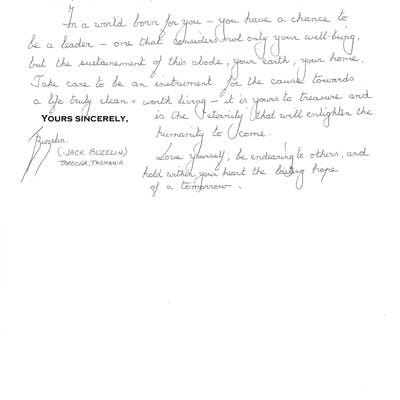 In a world born for you – you have a chance to
be a leader – one that considers not only your well-being,
but the sustainement of this abode, your earth, your home.
Take care to be an instrument for the cause towards
a life truly clean & worth living – it is yours to treasure and
is the eternity that will enlighten the
humanity to come.
Love yourself, be endearing to others, and
hold within your heart the lasting hope
of a tomorrow.
YOURS SINCERELY,
Buzelin.
(JACK BUZELIN)
TAROONA, TASMANIA